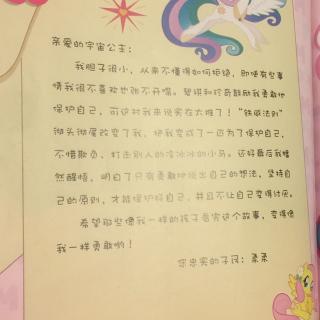 亲爱的宇宙公主：
我胆子很小，从来不懂得如何拒绝，即使有些事
情我很不喜欢也张不开嘴。碧琪和珍奇鼓励我勇敢地
保护自己，可这对我来说实在太难了！“铁腕法则”
彻头彻尾改变了我，把我变成了一匹为了保护自己，
不惜欺负、打击别人的冷冰冰的小马。还好最后我幡
然醒悟，明白了只有勇敢地说出自己的想法，坚持自
己的原则，才能保护好自己，并且不让自己变得讨厌。
希望那些像我一样的孩子看完这个故事，变得像
我一样勇敢哟！
您忠实的子民：柔柔